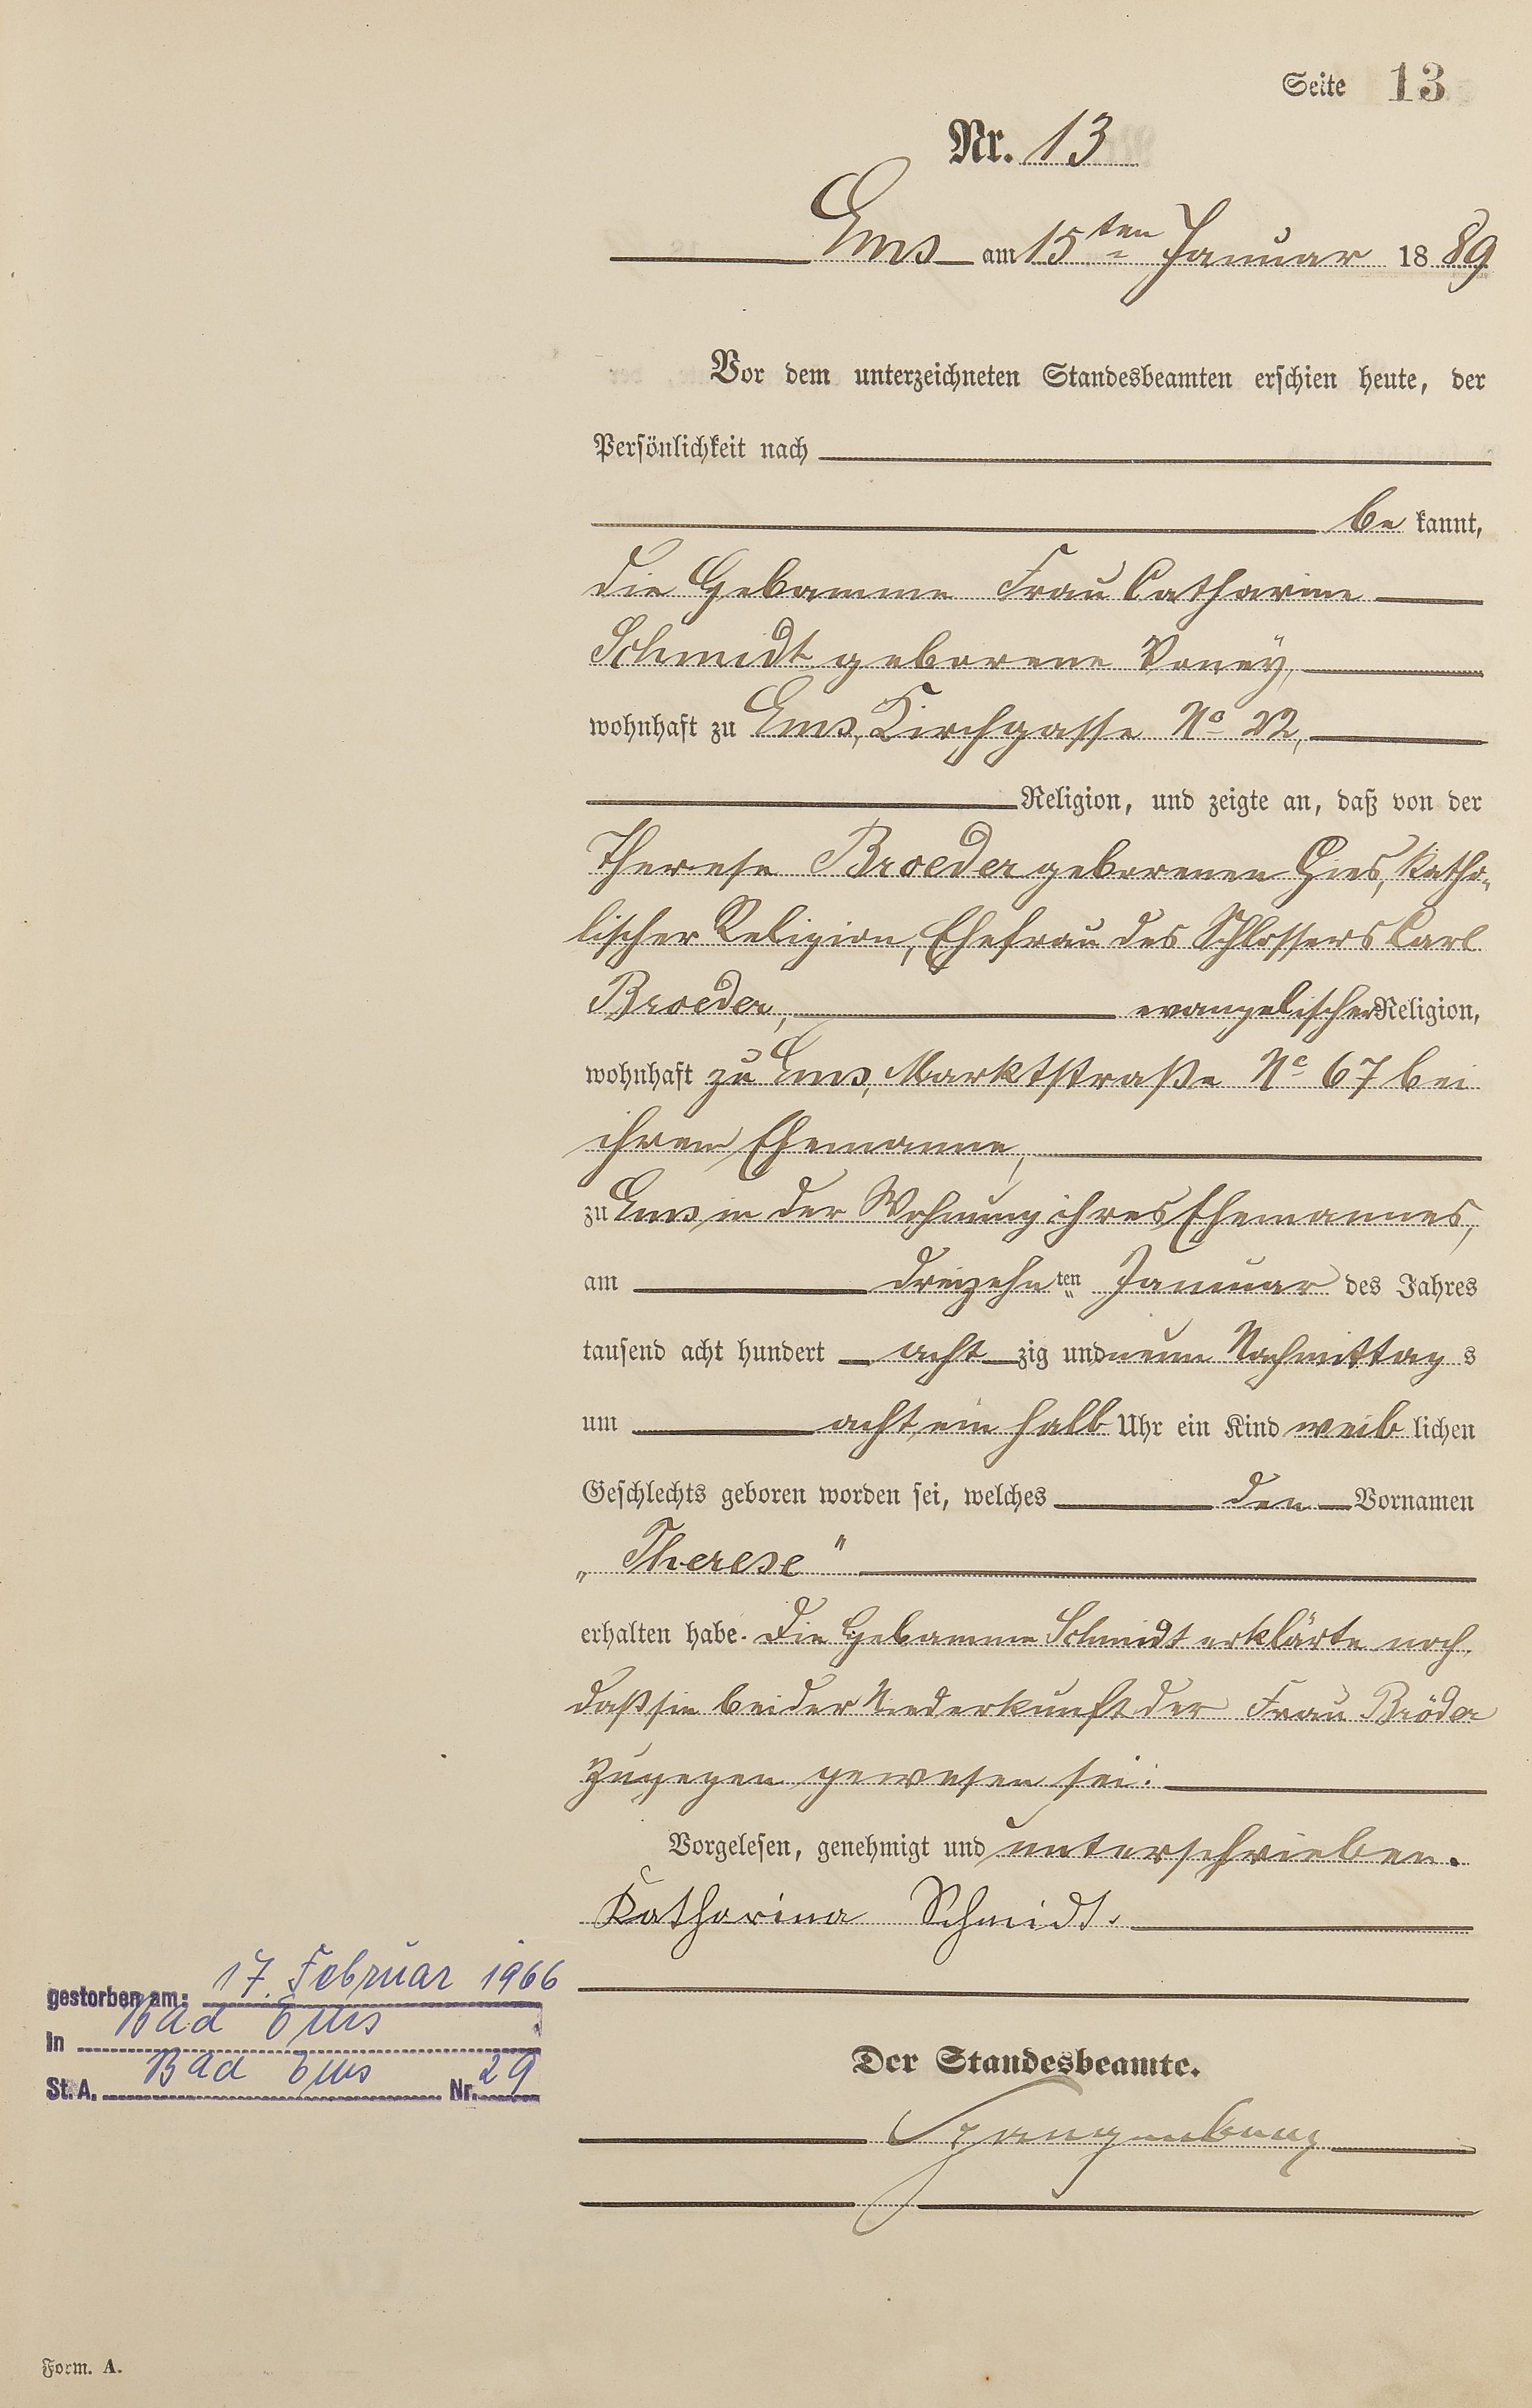 Seite 13
Nr. 13
Ems am 15ten Januar 1889
Vor dem unterzeichneten Standesbeamten erschien heute, der
Persönlichkeit nach
be kannt,
die Hebamme Frau Catharine
Schmidt geborene
wohnhaft zu Ems, Kirchgasse No 22,
Religion, und zeigte an, daß von der
Therese Broeder geborenen Gies, katho-
lischer Religion, Ehefrau des Schlossers Carl
Broeder, evangelischer Religion,
wohnhaft zu Ems, Marktstraße No 67 bei
ihrem Ehemanne,
zu Ems in der Wohnung ihres Ehemannes,
am dreizehnten Januar des Jahres
tausend acht hundert acht zig und neun Nachmittag s
um acht ein halb Uhr ein Kind weib lichen
Geschlechts geboren worden sei, welches den Vornamen
„Therese“
erhalten habe. Die Hebamme Schmidt erklärte noch,
daß sie bei der Niederkunft der Frau Bröder
zugegen gewesen sei.
Vorgelesen, genehmigt und unterschrieben.
Katharina Schmidt.
Der Standesbeamte.
Spangenberg
gestorben am: 17. Februar 1966
in Bad Ems
St. A. Bad Ems Nr. 29
Form. A.